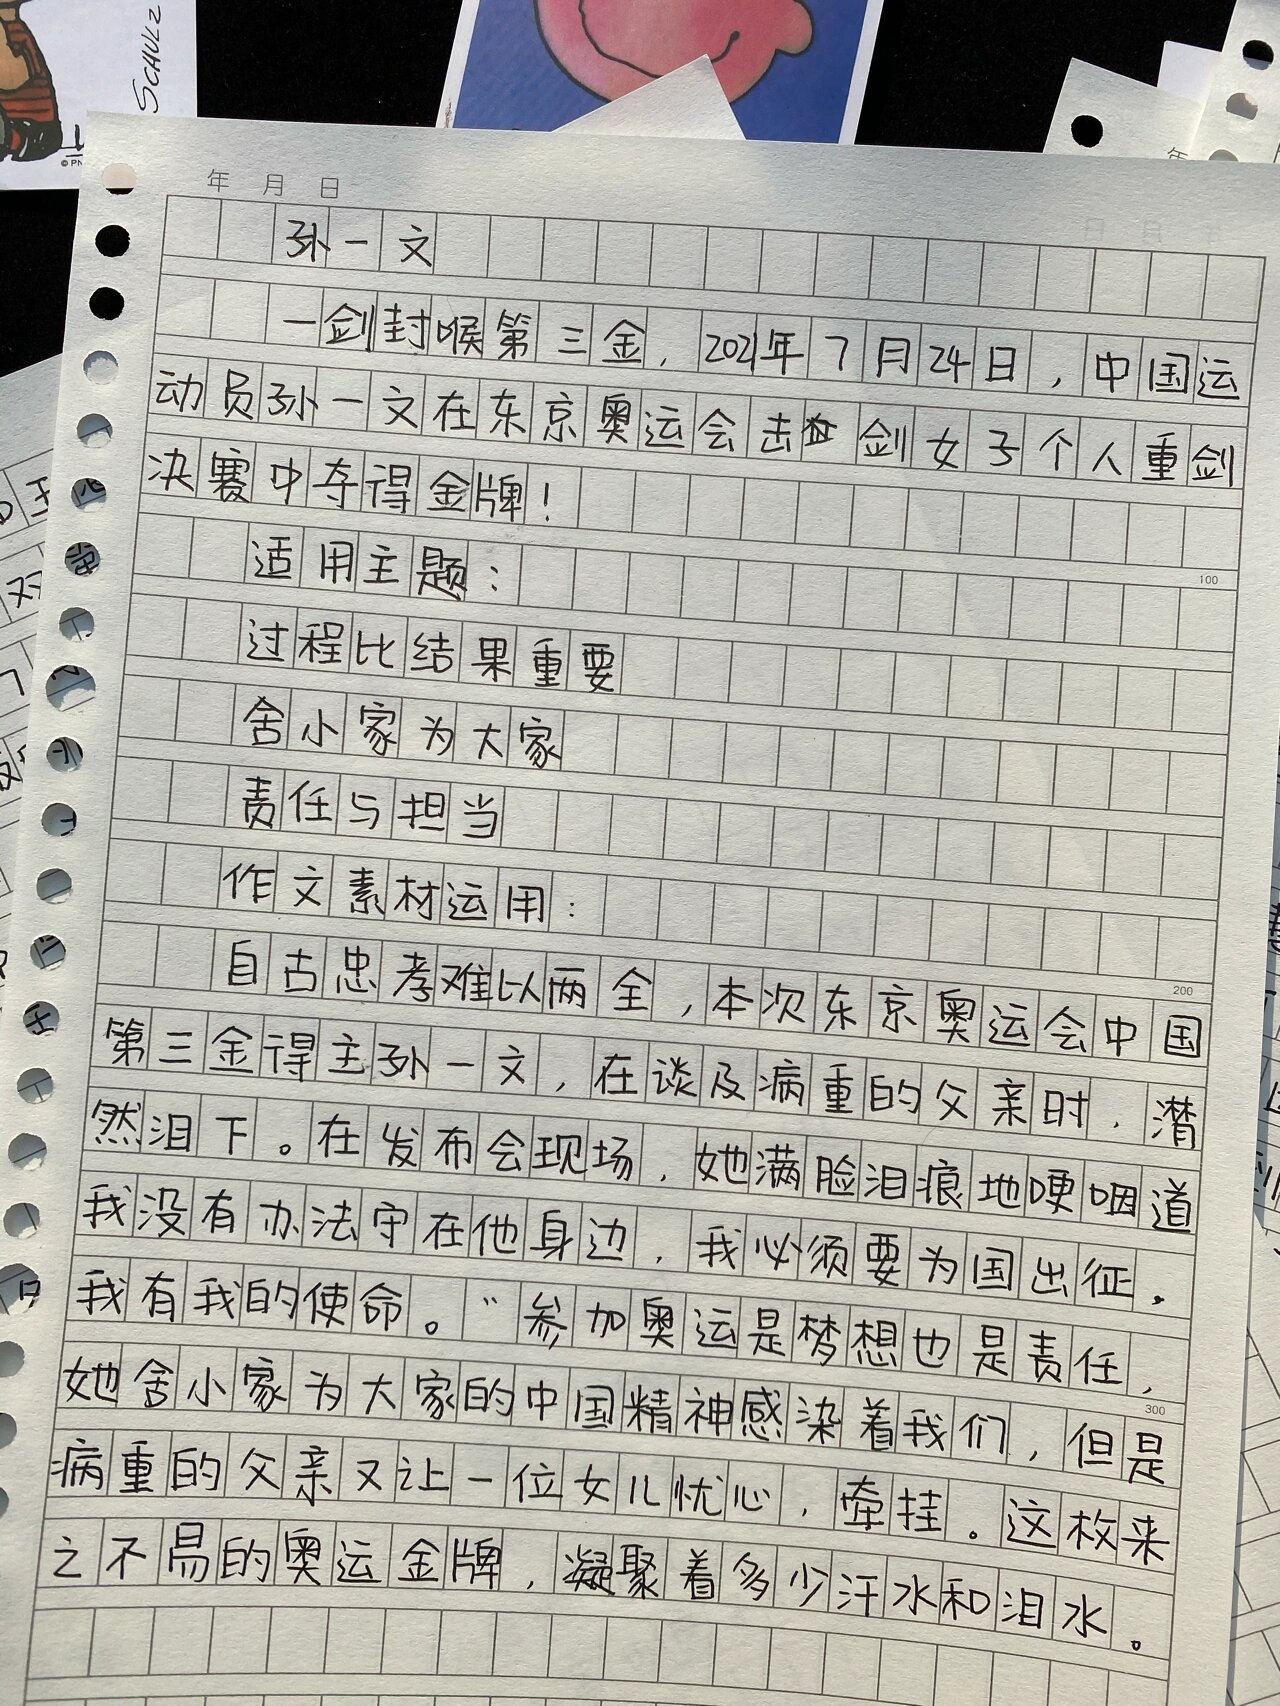 SCHULZ
© PN
年 月 日
孙一文
一剑封喉第三金，2021年7月24日，中国运
动员孙一文在东京奥运会击剑女子个人重剑
决赛中夺得金牌！
100
适用主题：
过程比结果重要
舍小家为大家
责任与担当
作文素材运用：
自古忠孝难以两全，本次东京奥运会中国
200
第三金得主孙一文，在谈及病重的父亲时，潸
然泪下。在发布会现场，她满脸泪痕地哽咽道
我没有办法守在他身边，我必须要为国出征，
我有我的使命。”参加奥运是梦想也是责任，
她舍小家为大家的中国精神感染着我们，但是
300
病重的父亲又让一位女儿忧心，牵挂。这枚来
之不易的奥运金牌，凝聚着多少汗水和泪水。